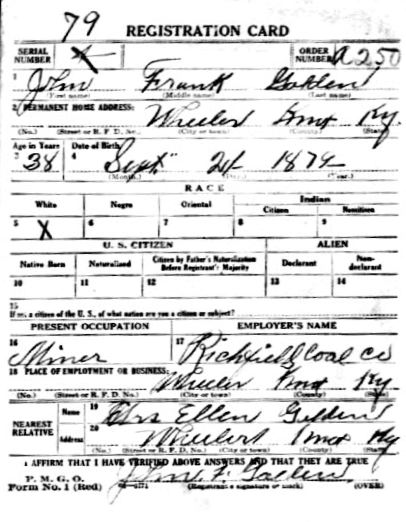 79
REGISTRATION CARD
SERIAL NUMBER X ORDER NUMBER A250
1 John Frank Golden
(First name) (Middle name) (Last name)
2 PERMANENT HOME ADDRESS: Wheeler Knox Ky.
(No.) (Street or R. F. D. No.) (City or town) (County) (State)
Age in Years Date of Birth
3 38 4 Sept. 24 1879
(Month.) (Day.) (Year.)
RACE
White Negro Oriental Indian
Citizen Noncitizen
5 X 6 7 8 9
U. S. CITIZEN ALIEN
Native Born Naturalized Citizen by Father's Naturalization Before Registrant's Majority Declarant Non-declarant
10 11 12 13 14
15
If not a citizen of the U. S., of what nation are you a citizen or subject?
PRESENT OCCUPATION EMPLOYER'S NAME
16 Miner 17 Richfield Coal Co
18 PLACE OF EMPLOYMENT OR BUSINESS: Wheeler Knox Ky
(No.) (Street or R. F. D. No.) (City or town) (County) (State)
NEAREST RELATIVE Name 19 Mrs Ellen Golden
Address 20 Wheeler Knox Ky
(No.) (Street or R. F. D. No.) (City or town) (County) (State)
I AFFIRM THAT I HAVE VERIFIED ABOVE ANSWERS AND THAT THEY ARE TRUE
P. M. G. O.
Form No. 1 (Red) John F. Golden
(Registrant's signature or mark) (OVER)